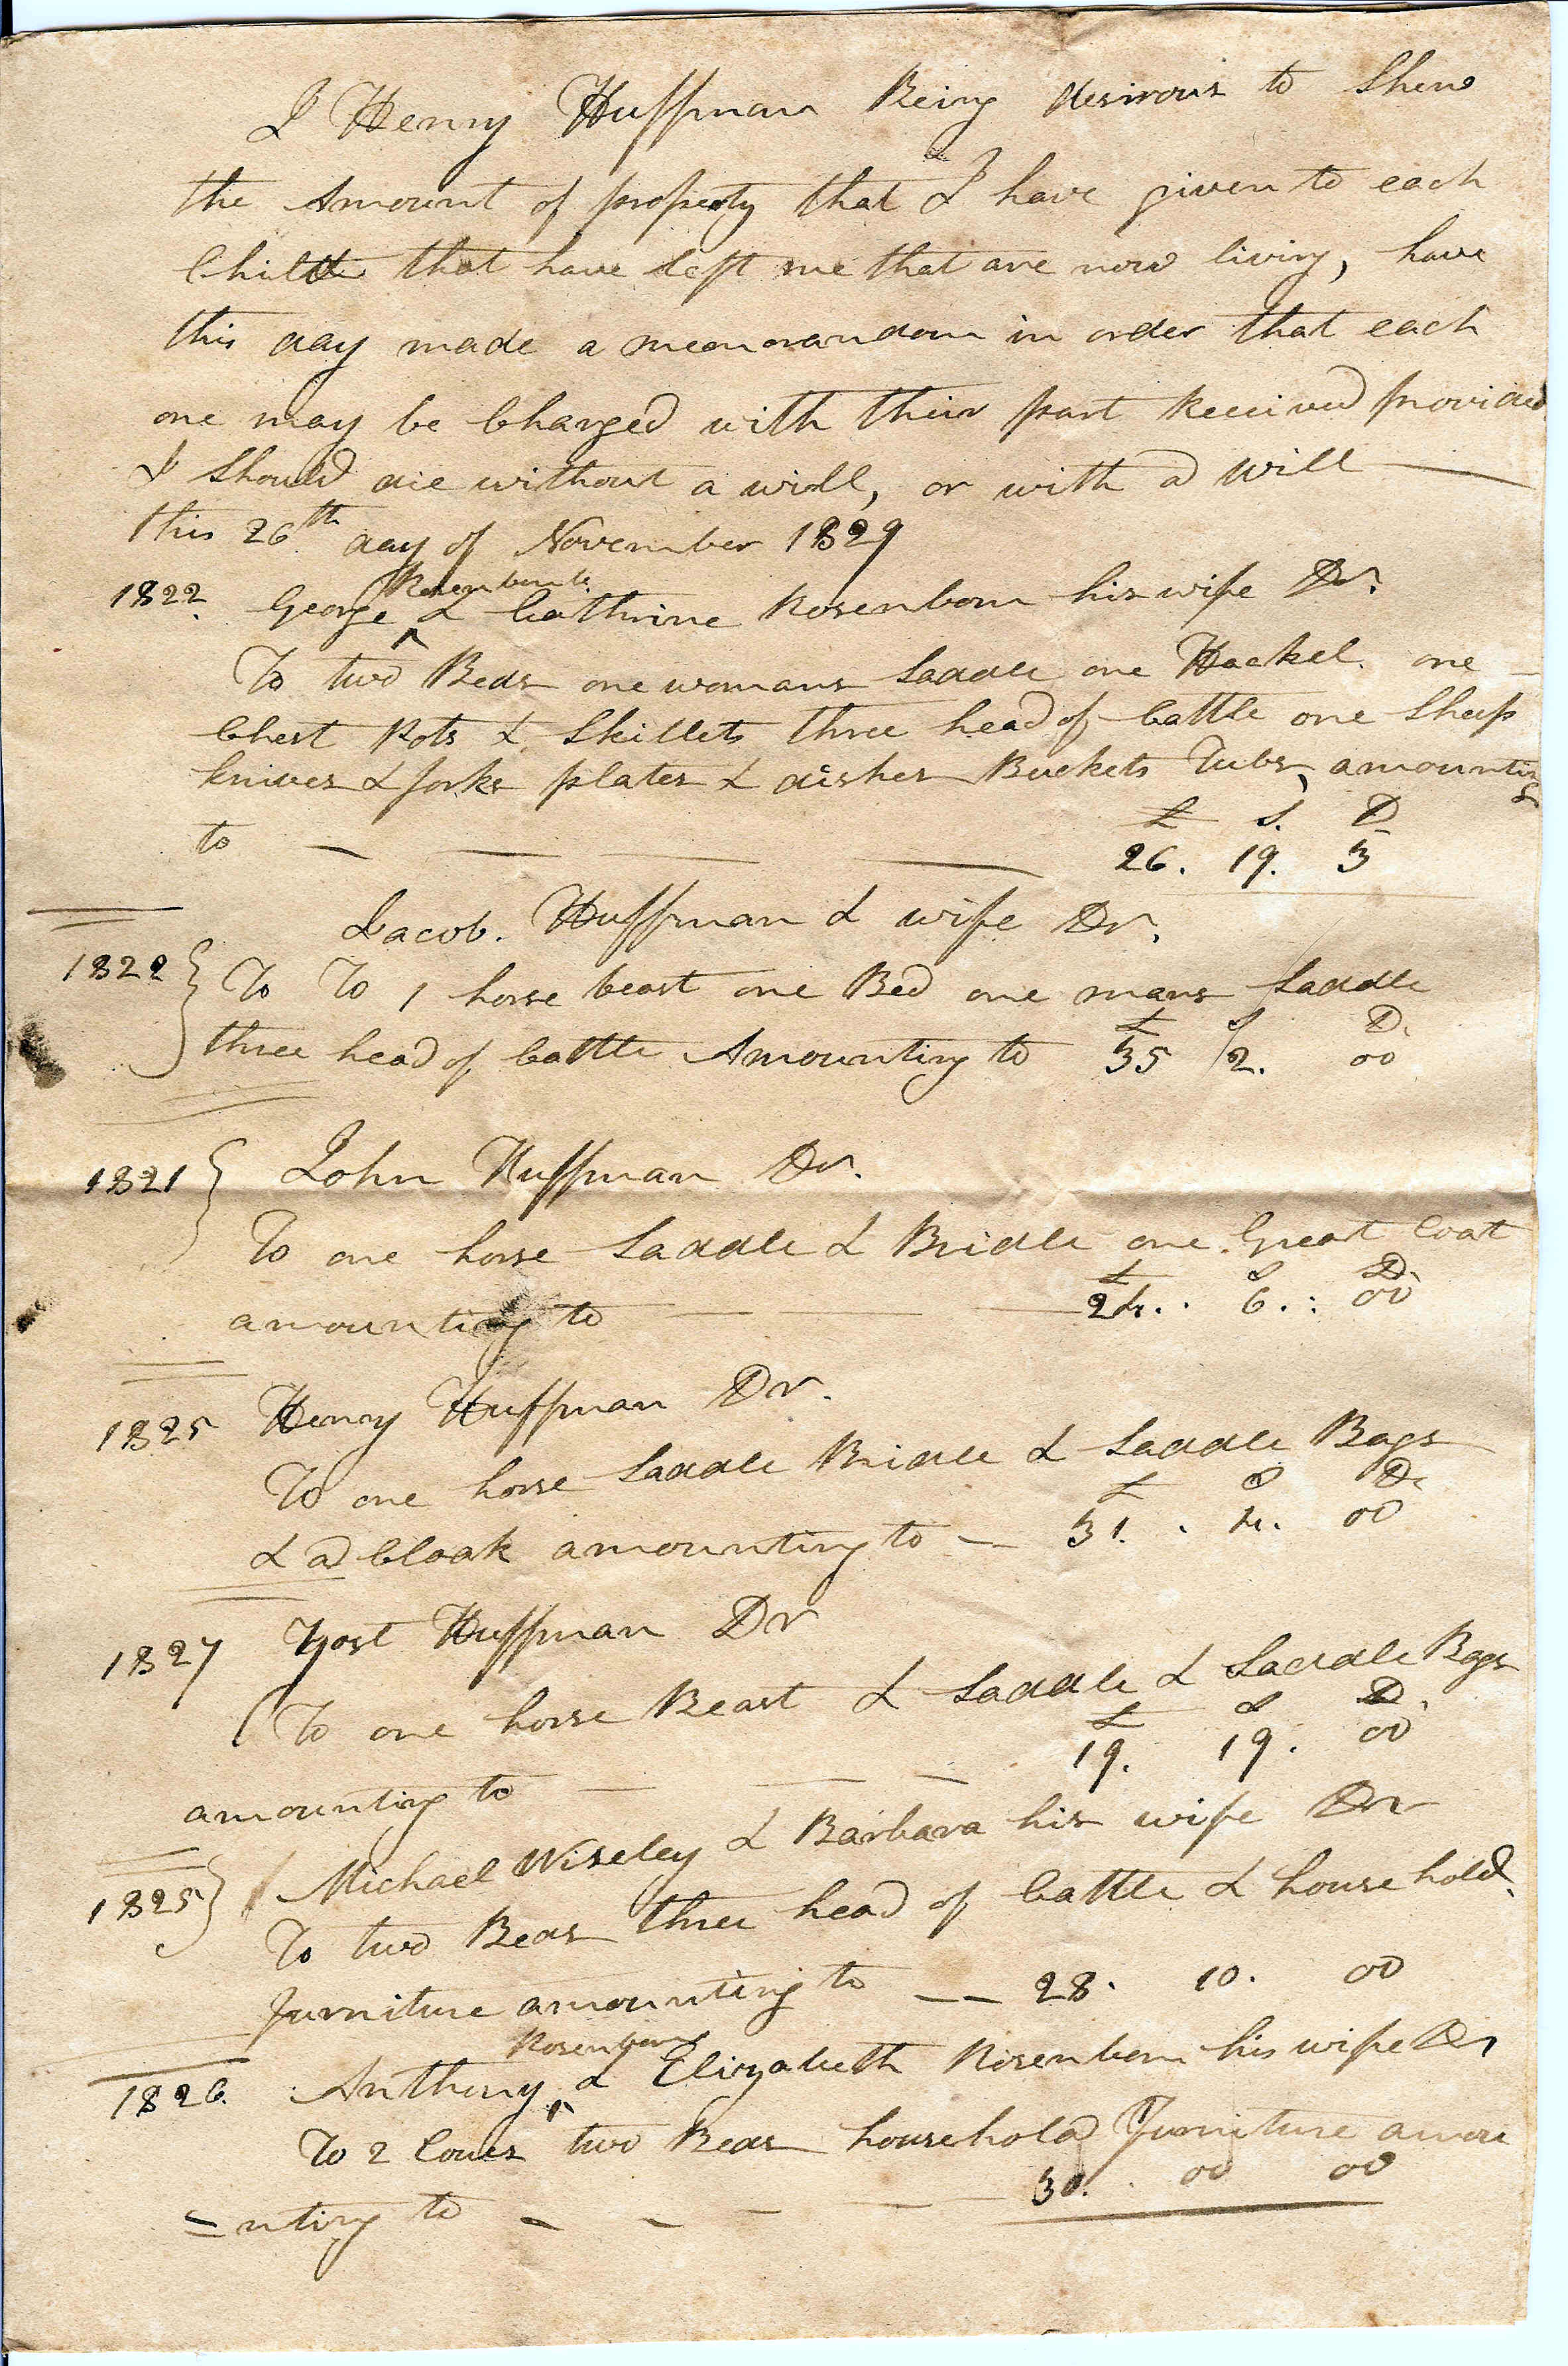 I Henry Huffman Being desirous to Shew
the Amount of property that I have given to each
Child that have left me that are now living, have
this day made a memorandom in order that each
one may be Charged with their part Received provided
I Should die without a will, or with a will
this 26th day of November 1829
1822 George Rosenbom & Cathrine Rosenbom his wife Dr.
To two Beds one womans Saddle one Hackel one
Chest Pots & Skillets three head of Cattle one Sheep
knives & forks plates & dishes Buckets Tubs amounting
£ S. D
to 26. 19. 3
Jacob. Huffman & wife Dr.
1822 To To 1 horse beast one Bed one mans Saddle
£ S D.
three head of Cattle Amounting to 35 2. 00
1821 John Huffman Dr.
To one horse Saddle & Bridle one Great Coat
£ S D.
amounting to 24. 6. 00
1825 Henry Huffman Dr.
To one horse Saddle Bridle & Saddle Bags
£ S D.
& a Cloak amounting to 31. 4. 00
1827 Yost Huffman Dr
To one horse Beast & Saddle & Saddle Bags
£ S D.
19. 19. 00
amounting to
1825 Michael Wiseley & Barbara his wife Dr
To two Beds three head of Cattle & household
furniture amounting to 28. 10. 00
1826. Anthony Rosenbom & Elizabeth Rosenbom his wife Dr
To 2 Cows two Beds household Furniture amou
=nting to 30. 00 00